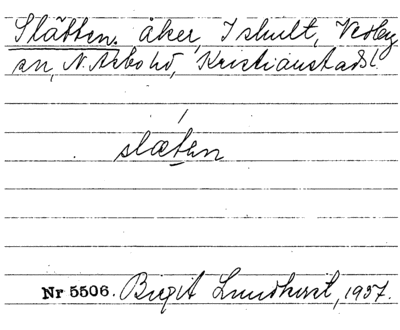 Slätten. åker, Ishult, Verby
sn, N. Åsbo hd, Kristianstads l
slæten
Nr 5506. Birgit Lundkvist, 1937.